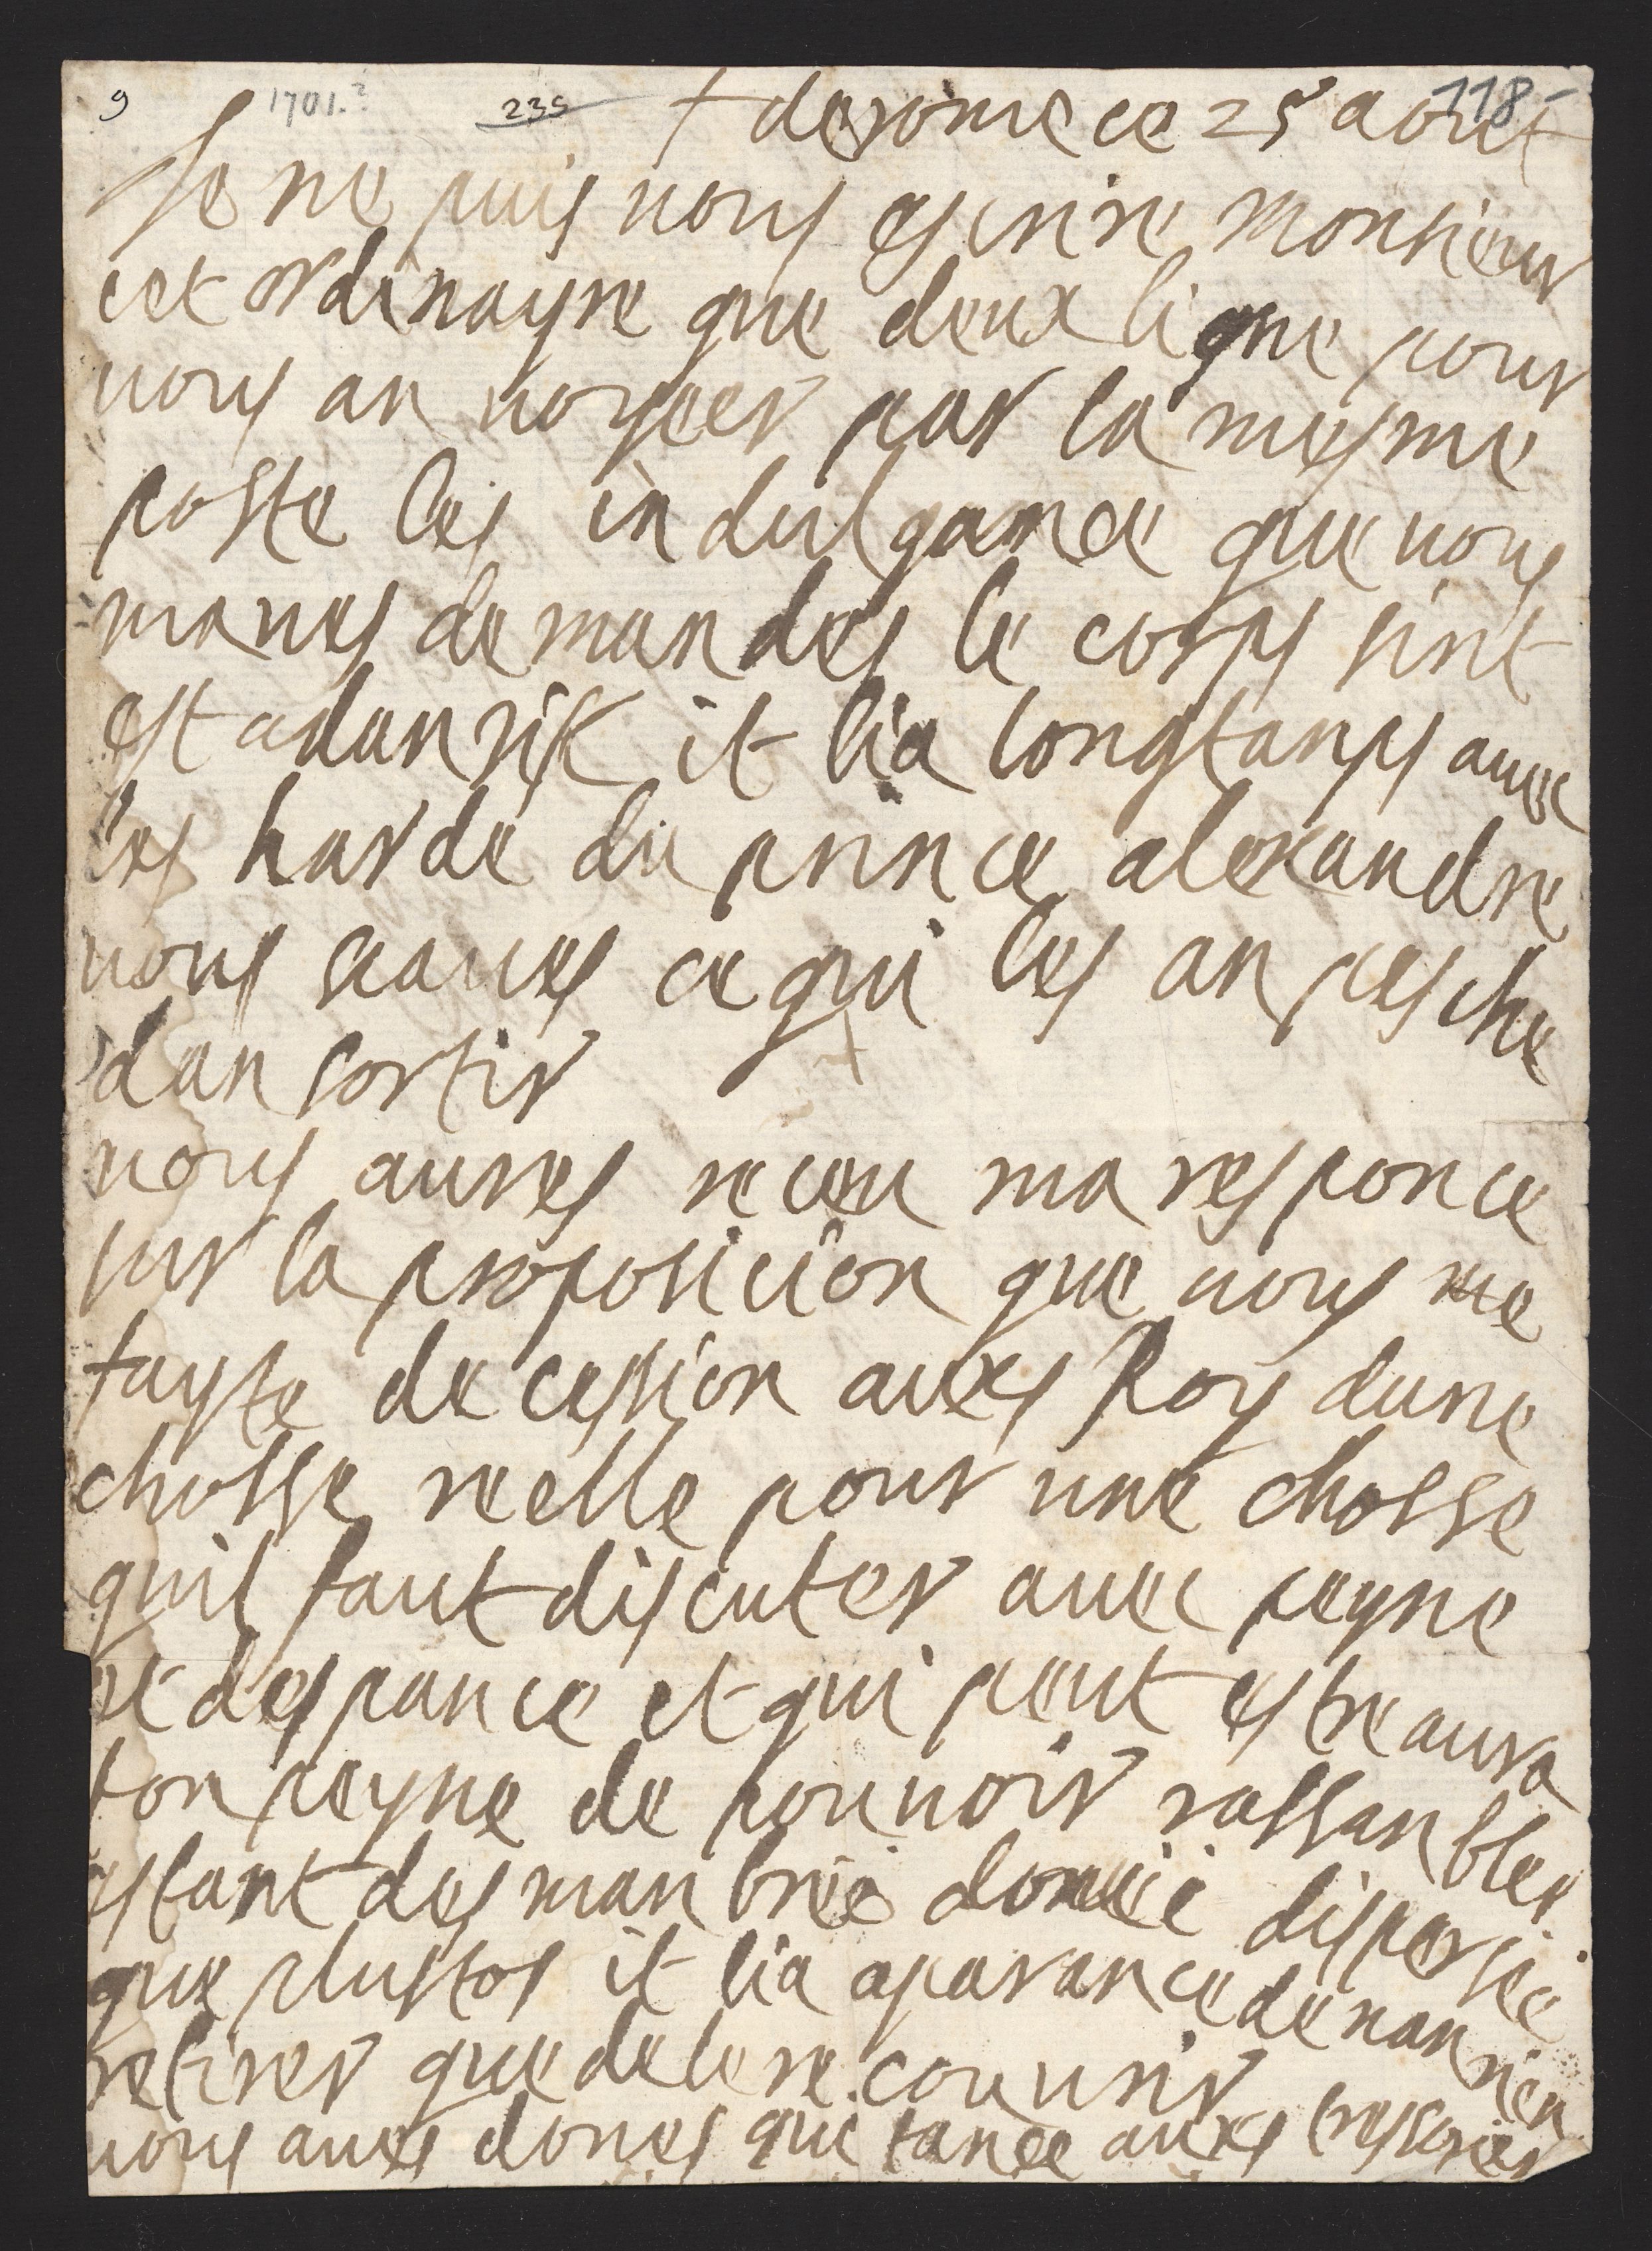 9 1701.? 235 118-
+ derome ce 25 aout
Je ne puis vous escrire Monsieur
cet ordinayre que deux ligne pour
vous anvoyeer par la mesme
poste les indulgance que vous
maves demandes le corps sint
est a dansik it lia longtanps avec
les harde du prince alexandre
vous scaves ce qui les anpesche
dan sortir
vous aures receu ma responce
sur la proposicion que vous me
fayste de cession auxs Roy dune
chosse reelle pour une chosse
quil faut discuter avec peyne
et despance et qui peut estre aura
ton peyne de pouvoir rassanbler
estant desmanbrée donnée dispersée
que plustos it lia aparance de nan rien
retirer que de le recouvrir
vous aves dones quitance auxs tressorier